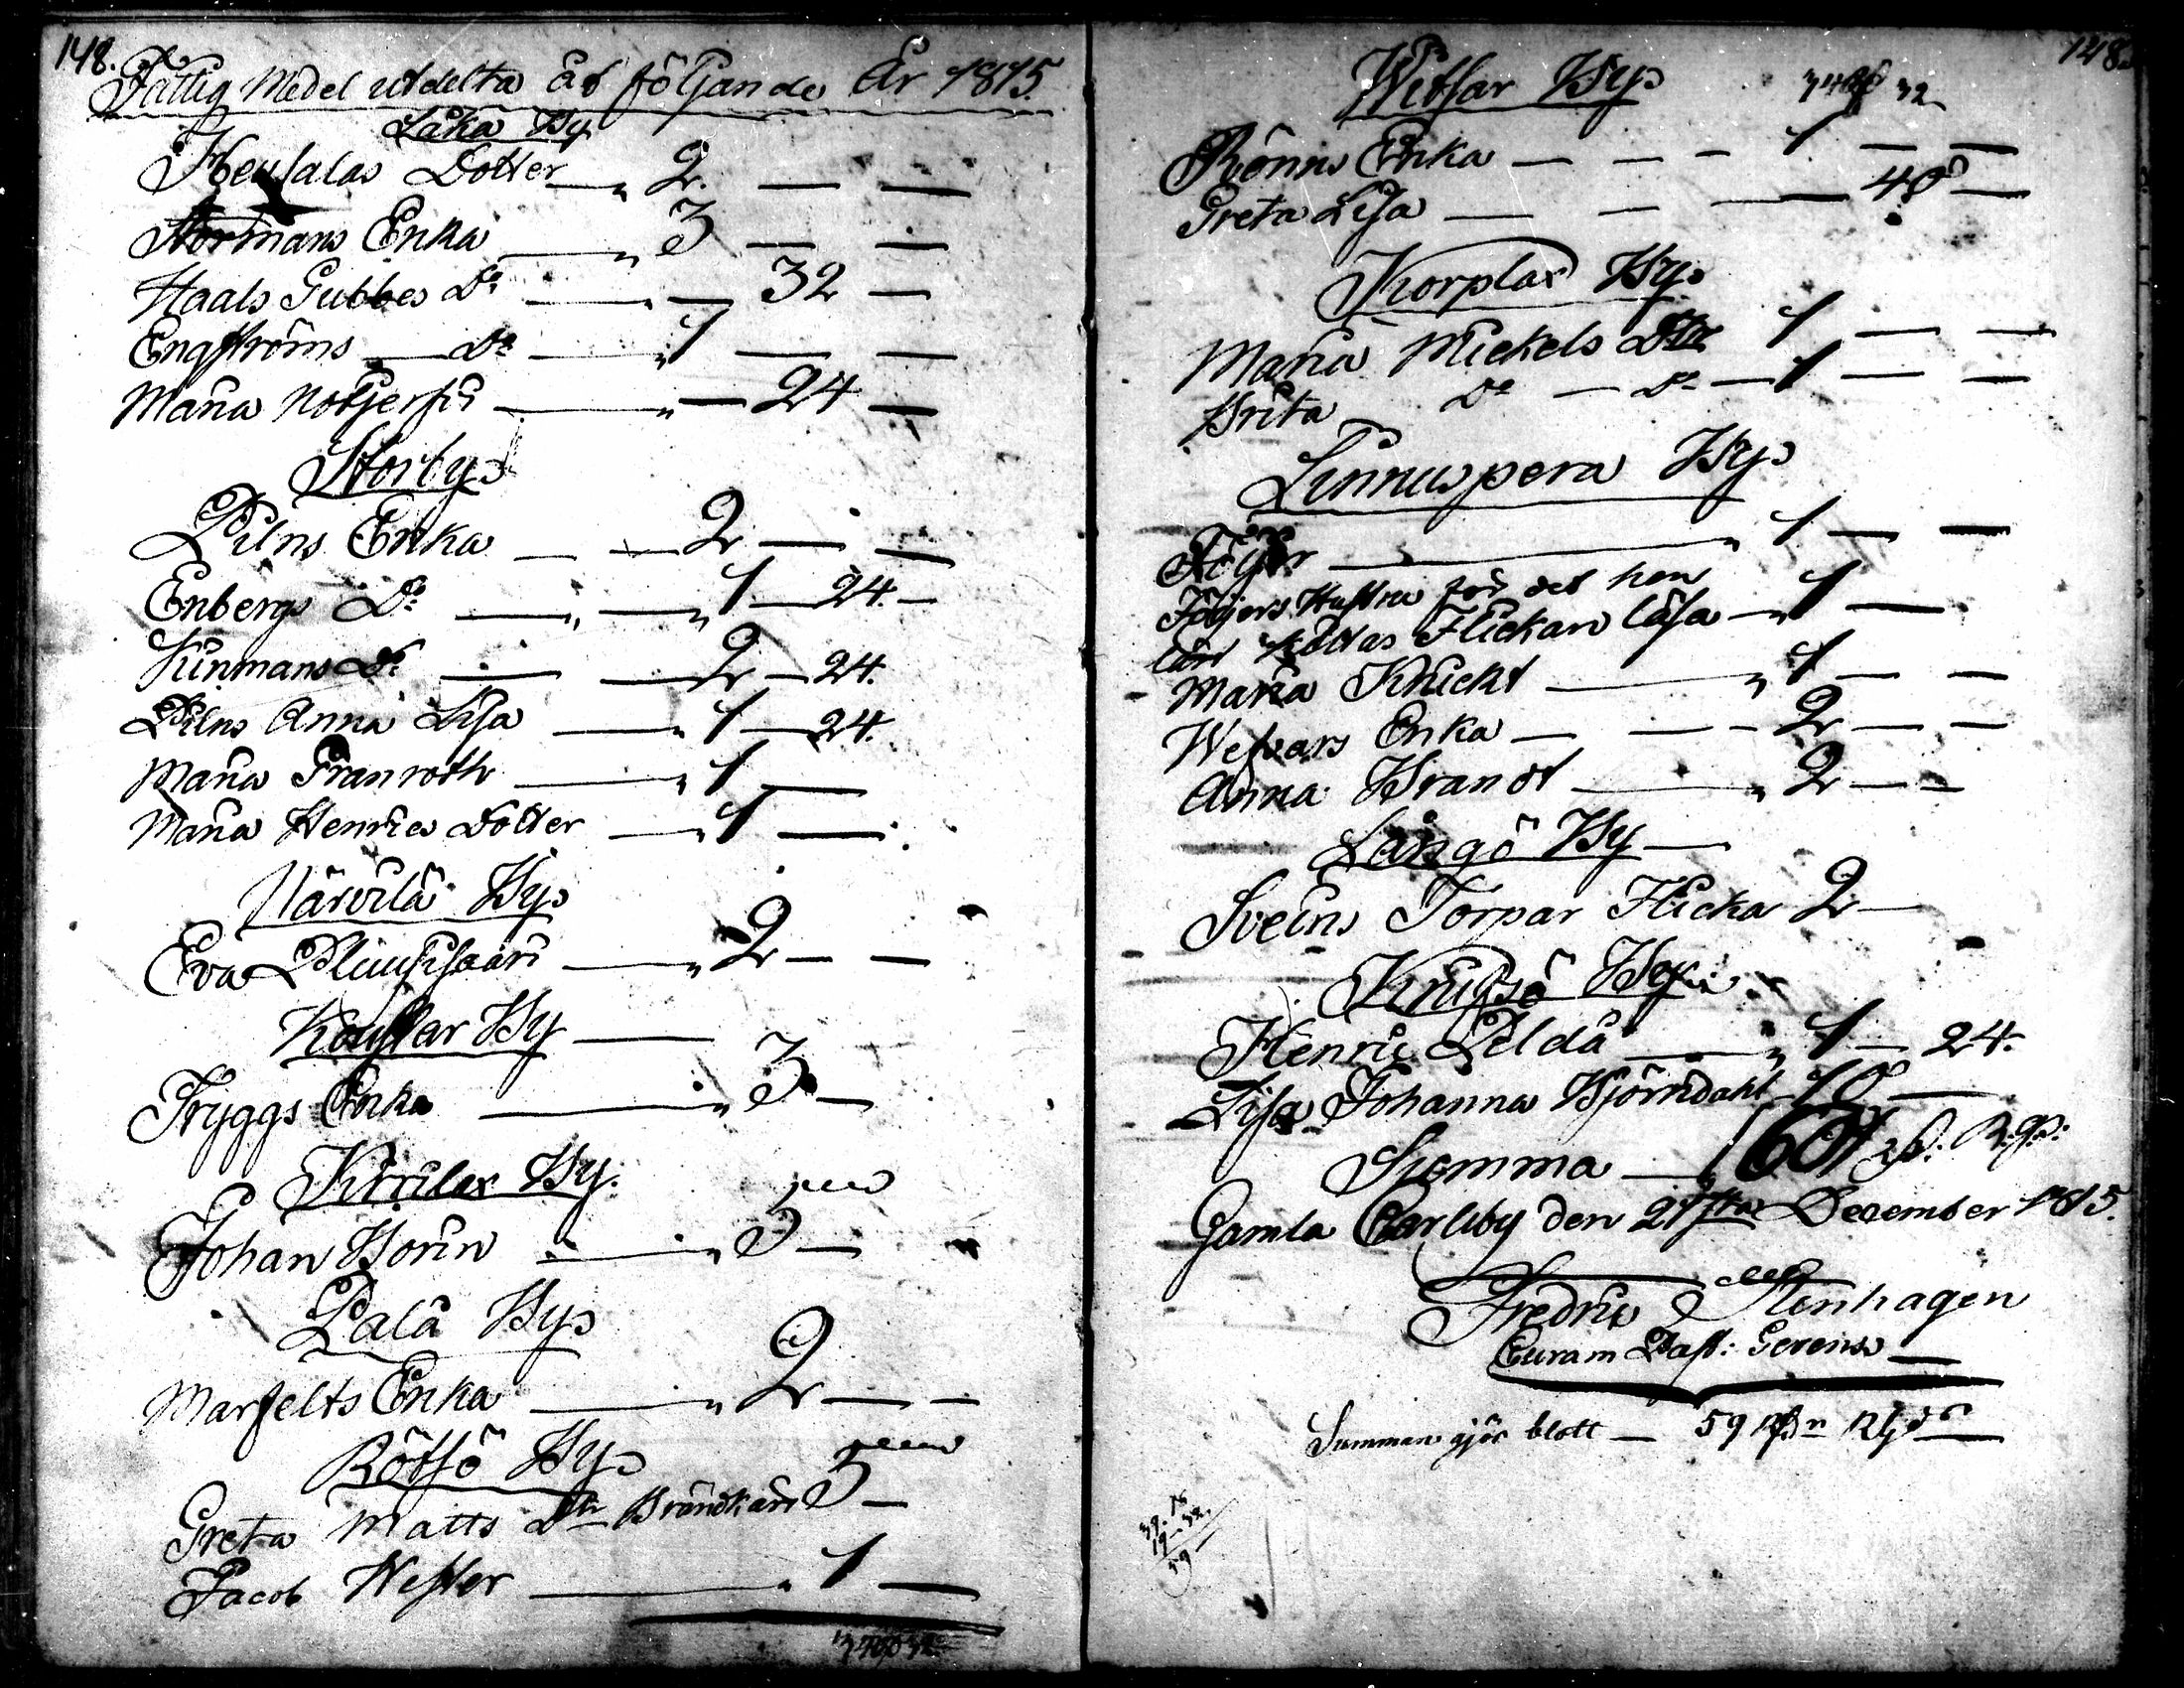 148.
Fattig Medel utdelta åt följande År 1815.
Såka By
Heusalas Dotter — 2. — —
Stormans Enka — 3 — —
Haals Gubbes Do — — 32 —
Engströms — Do — 1 — —
Maria Notjerfvi — — 24 —
Storby
Pilns Enka — — 2 — —
Enbergs Do — „ — 1 — 24. —
Kinmans Do — — 2 — 24.
Pilns Anna Lisa — 1 — 24.
Maria Granroth — 1 —
Maria Henrics Dotter — 1 —
Närvilä By
Eva Pliuusisaari — 2 — —
Kouslar By —
Tryggs Enka — 3 —
Kirilax By.
Johan Borin — 3 —
Palå By
Marfelts Enka — 2 — —
Rötsö By
Greta Matts Dtr Brändkärr 3 —
Jacob Wester — 1 —
148.
Witsar By
32
Rönns Enka — — - 1 — —
Greta Lisa — — — 40 —
Korplax By
Maria Mickels Dtr 1 — —
Brita Do — Do — 1 — —
Linnuspera By
Föger — 1 — —
Fögers Hustru för det hon
lärt Koltas Flickan läsa — 1 —
Maria Knickt — 1 — —
Wefvars Enka — — - 2 — —
Anna Brandt — 2 — —
Långö By —
Sveins Torpar Flicka 2 —
Knifsö By
Henric Peldå — 1 — 24.
Lisa Johanna Björndahl — 10 —
Summa — 60 R:gs:
Gamla Carleby den 21sta December 1815.
Fredric Stenhagen
Curam Past: Gerens —
Summan gjör blott — 59 Rß 12
19 - 32.
59